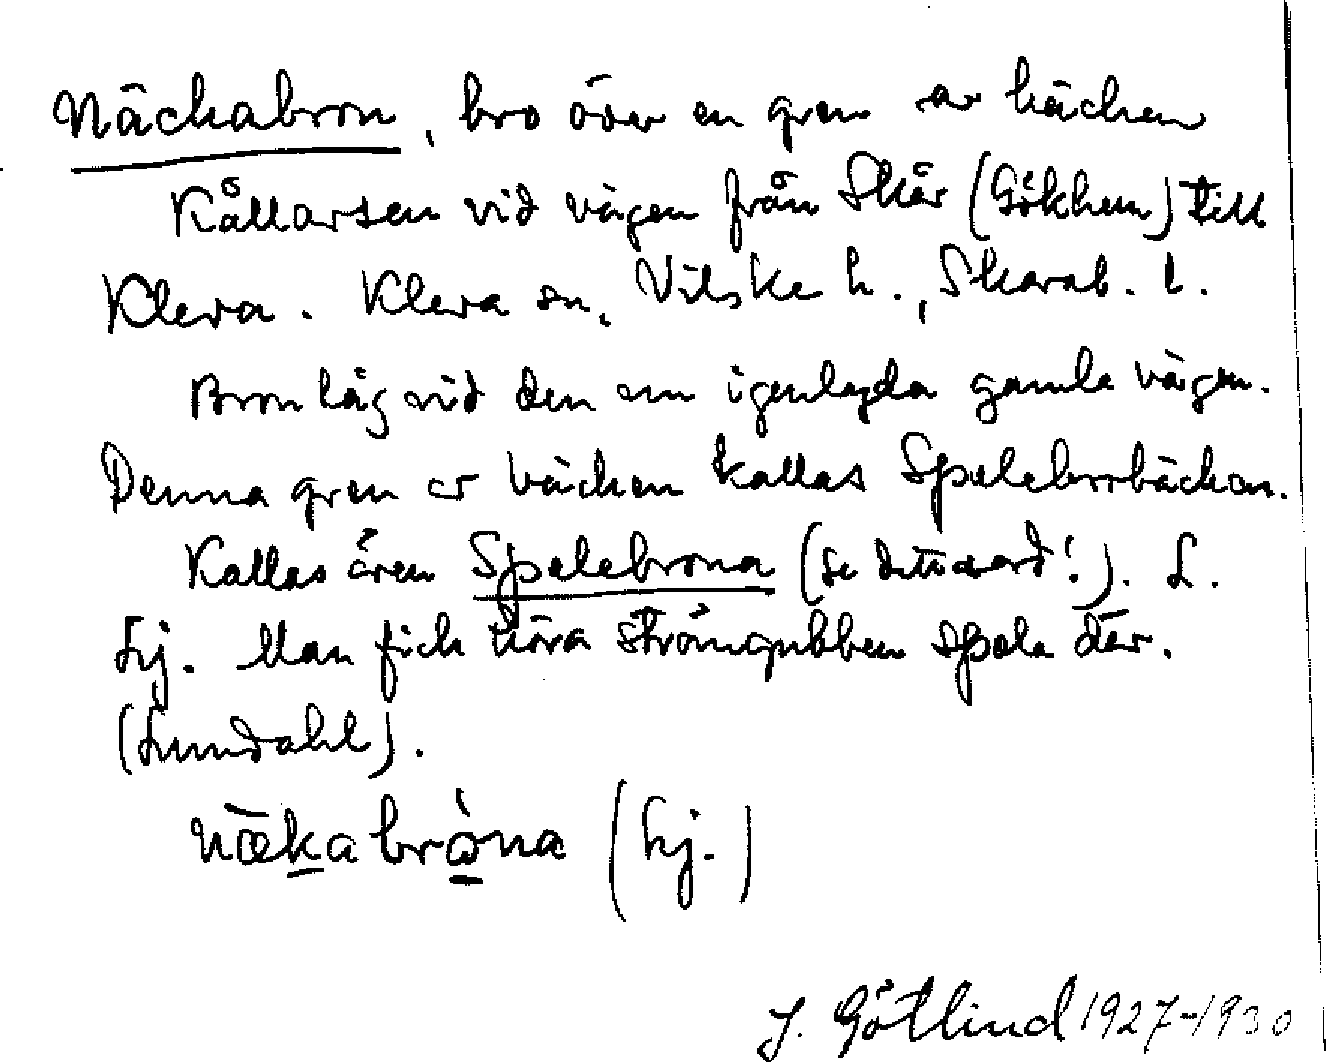 Näckabron, bro över en gren av bäcken
Kållarsen vid vägen från Skår (Gökhem) till
Kleva. Kleva sn, Vilske h., Skarab. l.
Bron låg vid den nu igenlagda gamla vägen.
Denna gren av bäcken kallas Spelebrobäcken.
Kallas även Spelebrona (se detta ord!). L.
Hj. Man fick höra strömgubben spela där.
(Lundahl).
næka bròna (Hj.)
J. Götlind 1927-1930